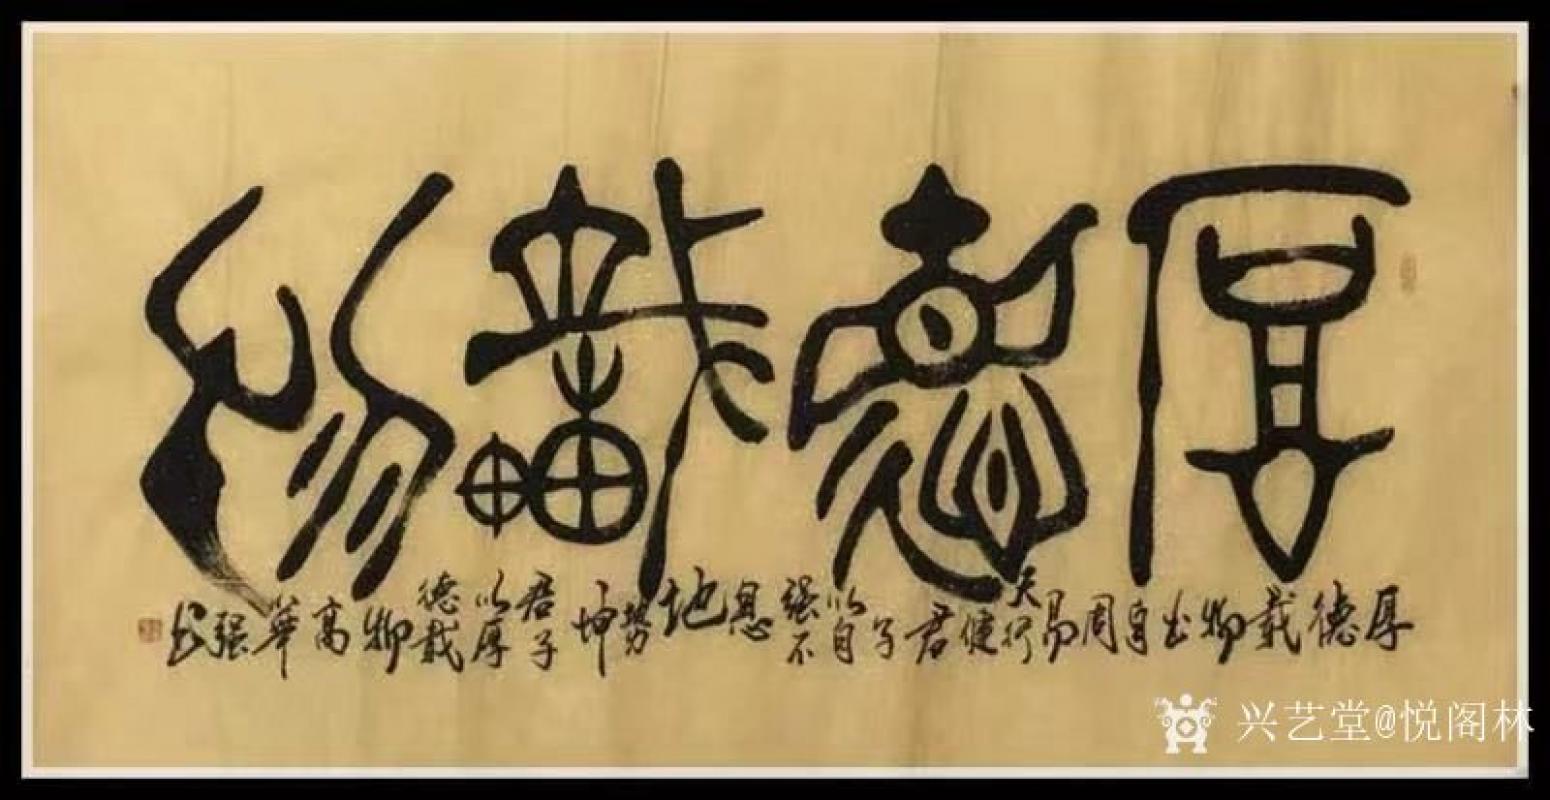 厚德载物
厚德载物出自周易天行健君子以自强不息地势坤君子以厚德载物高华强书
兴艺堂@悦阁林